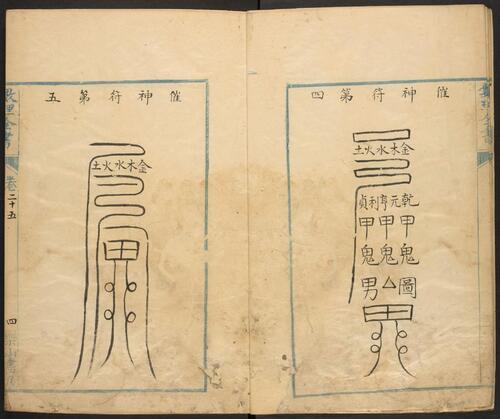 催神符第四
金木水火土
乾元亨利貞
甲甲甲
鬼鬼鬼
圖厶男
催神符第五
金木水火土
數理全書
卷二十五
四